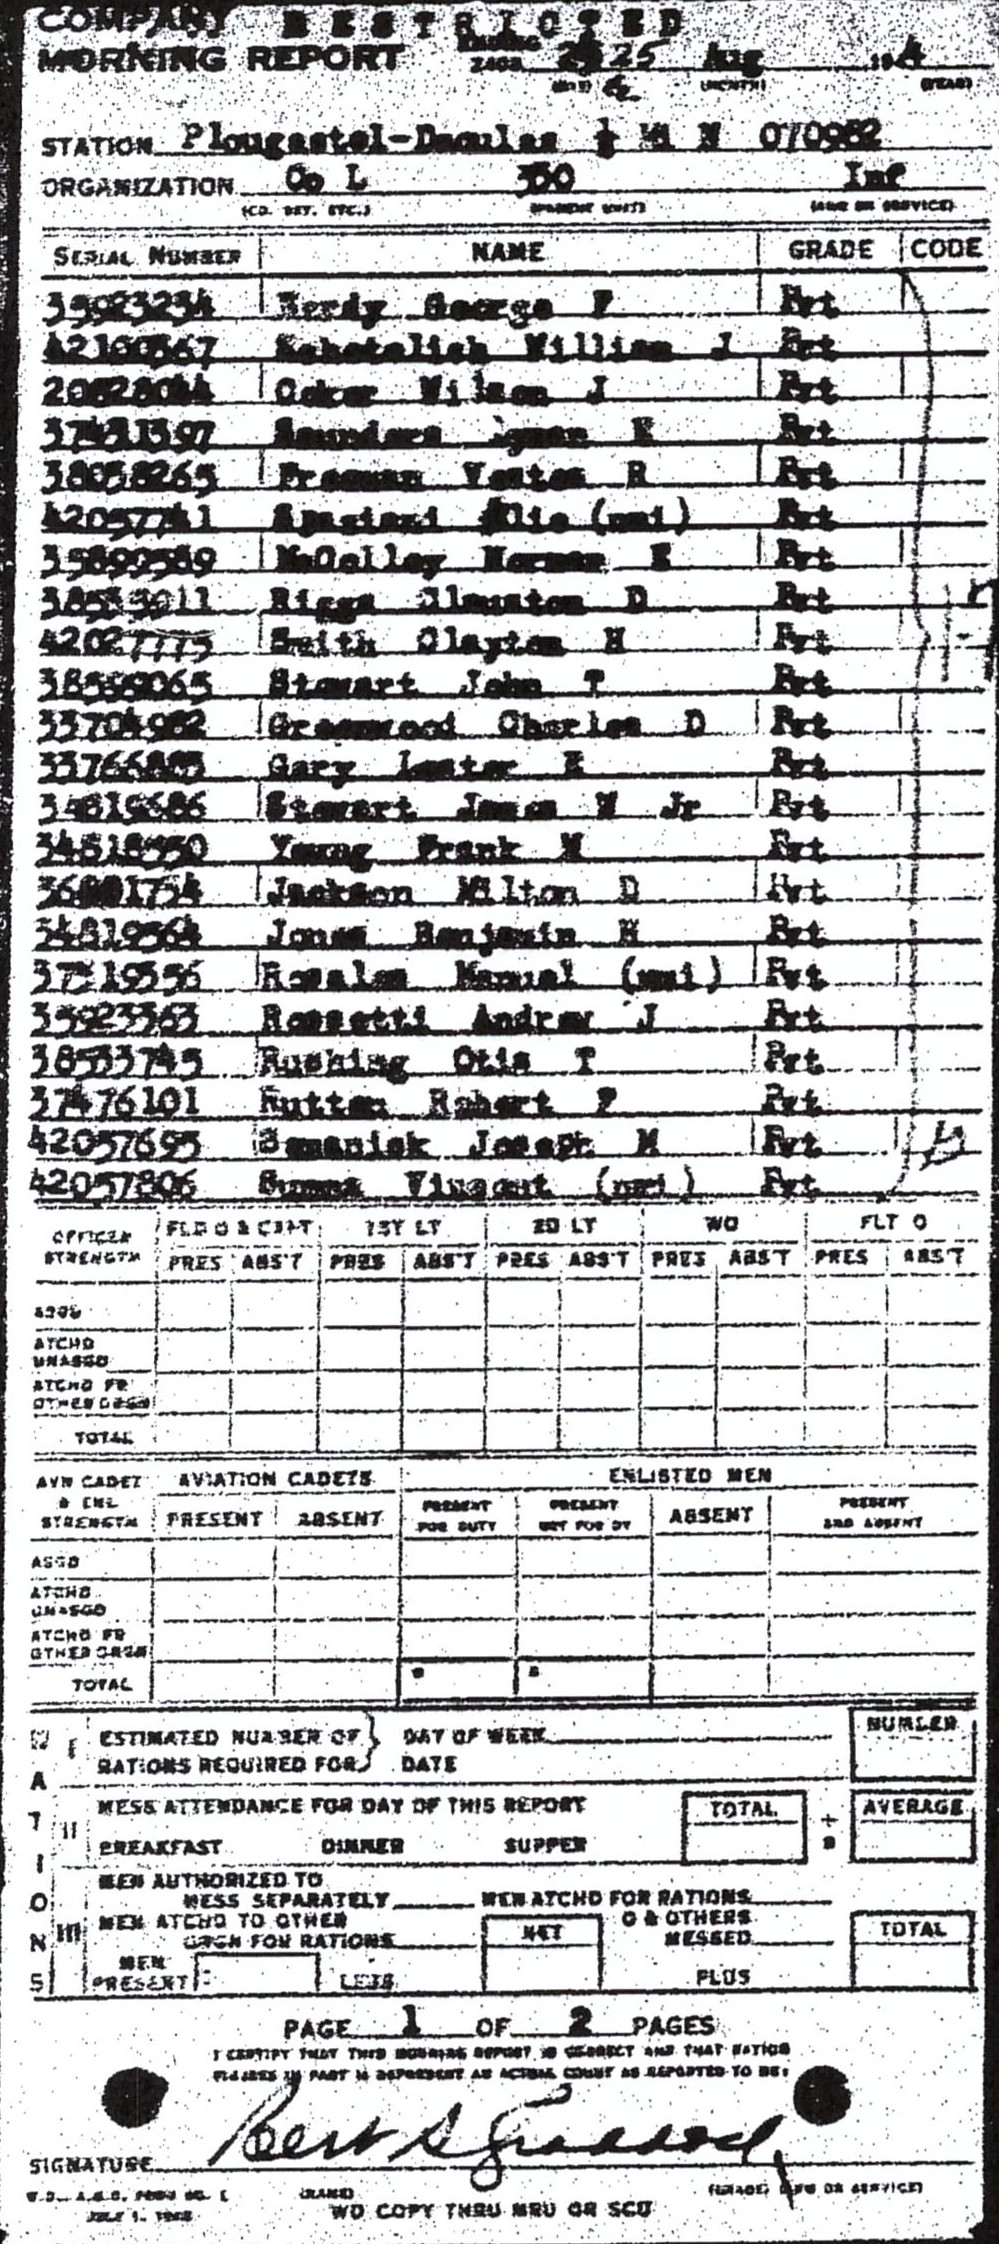 COMPANY RESTRICTED
MORNING REPORT ENDING 2400 25 Aug 1944
(DAY) (MONTH) (YEAR)
STATION Plougastel-Daoulas ½ Mi N 070982
ORGANIZATION Co L 330 Inf
(CO. DET. ETC.) (PARENT UNIT) (ARM OR SERVICE)
SERIAL NUMBER NAME GRADE CODE
35923234 George F Pvt
42100367 William J Pvt
Wilson J Pvt
37431397 Saunders Lyman E Pvt
38058265 Freeman R Pvt
42057741 (nmi) Pvt
35899589 McColley Norman E Pvt
Riggs D Pvt
42027775 Smith Clayton H Pvt
Stewart John T Pvt
33704982 Greenwood Charles D Pvt
33766883 Gary Lester E Pvt
34819686 Stewart James W Jr Pvt
34518350 Young Frank M Pvt
Jackson Milton D Pvt
34819564 Jones Benjamin H Pvt
Rosales Manual (nmi) Pvt
35923363 Rossetti Andrew J Pvt
38533745 Rushing Otis T Pvt
37476101 Rutten Robert P Pvt
42057695 Semaniek Joseph M Pvt
42057806 Summa Vincent (nmi) Pvt
OFFICER STRENGTH FLD O & CAPT 1ST LT 2D LT WO FLT O
PRES ABS'T PRES ABS'T PRES ABS'T PRES ABS'T PRES ABS'T
ASGD
ATCHD UNASGD
ATCHD FR OTHER ORGN
TOTAL
AVN CADET & ENL STRENGTH AVIATION CADETS ENLISTED MEN
PRESENT ABSENT PRESENT FOR DUTY PRESENT NOT FOR DY ABSENT PRESENT AND ABSENT
ASGD
ATCHD UNASGD
ATCHD FR OTHER ORGN
TOTAL
RATIONS
I ESTIMATED NUMBER OF } DAY OF WEEK NUMBER
RATIONS REQUIRED FOR } DATE
II MESS ATTENDANCE FOR DAY OF THIS REPORT TOTAL ÷ = AVERAGE
BREAKFAST DINNER SUPPER
III MEN AUTHORIZED TO
MESS SEPARATELY MEN ATCHD FOR RATIONS
MEN ATCHD TO OTHER ORGN FOR RATIONS NET O & OTHERS MESSED TOTAL
MEN PRESENT LESS PLUS
PAGE 1 OF 2 PAGES
I CERTIFY THAT THIS MORNING REPORT IS CORRECT AND THAT RATION
FIGURES IN PART III REPRESENT AN ACTUAL COUNT AS REPORTED TO ME:
SIGNATURE
(NAME) (GRADE) (ARM OR SERVICE)
W.D., A.G.O. FORM NO. 1
WD COPY THRU MRU OR SCU